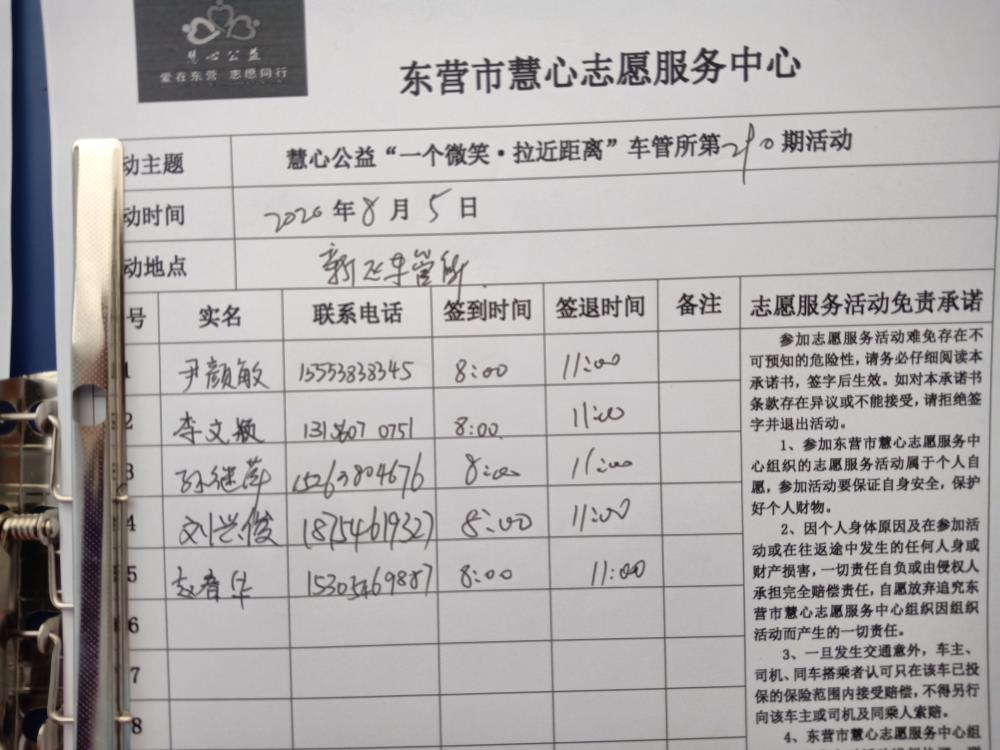 慧心公益
爱在东营 志愿同行
东营市慧心志愿服务中心
动主题 慧心公益“一个微笑·拉近距离”车管所第210期活动
动时间 2020年8月5日
动地点 新飞车管所
号 实名 联系电话 签到时间 签退时间 备注 志愿服务活动免责承诺
1 尹颜敏 15553838345 8:00 11:00
2 李文颖 8:00 11:00
3 孙继萍 15263804676 8:00 11:00
4 刘兴俊 18754619327 8:00 11:00
5 赵春华 15305469887 8:00 11:00
6
7
8
参加志愿服务活动难免存在不
可预知的危险性，请务必仔细阅读本
承诺书，签字后生效。如对本承诺书
条款存在异议或不能接受，请拒绝签
字并退出活动。
1、参加东营市慧心志愿服务中
心组织的志愿服务活动属于个人自
愿，参加活动要保证自身安全，保护
好个人财物。
2、因个人身体原因及在参加活
动或在往返途中发生的任何人身或
财产损害，一切责任自负或由侵权人
承担完全赔偿责任，自愿放弃追究东
营市慧心志愿服务中心组织因组织
活动而产生的一切责任。
3、一旦发生交通意外，车主、
司机、同车搭乘者认可只在该车已投
保的保险范围内接受赔偿，不得另行
向该车主或司机及同乘人索赔。
4、东营市慧心志愿服务中心组